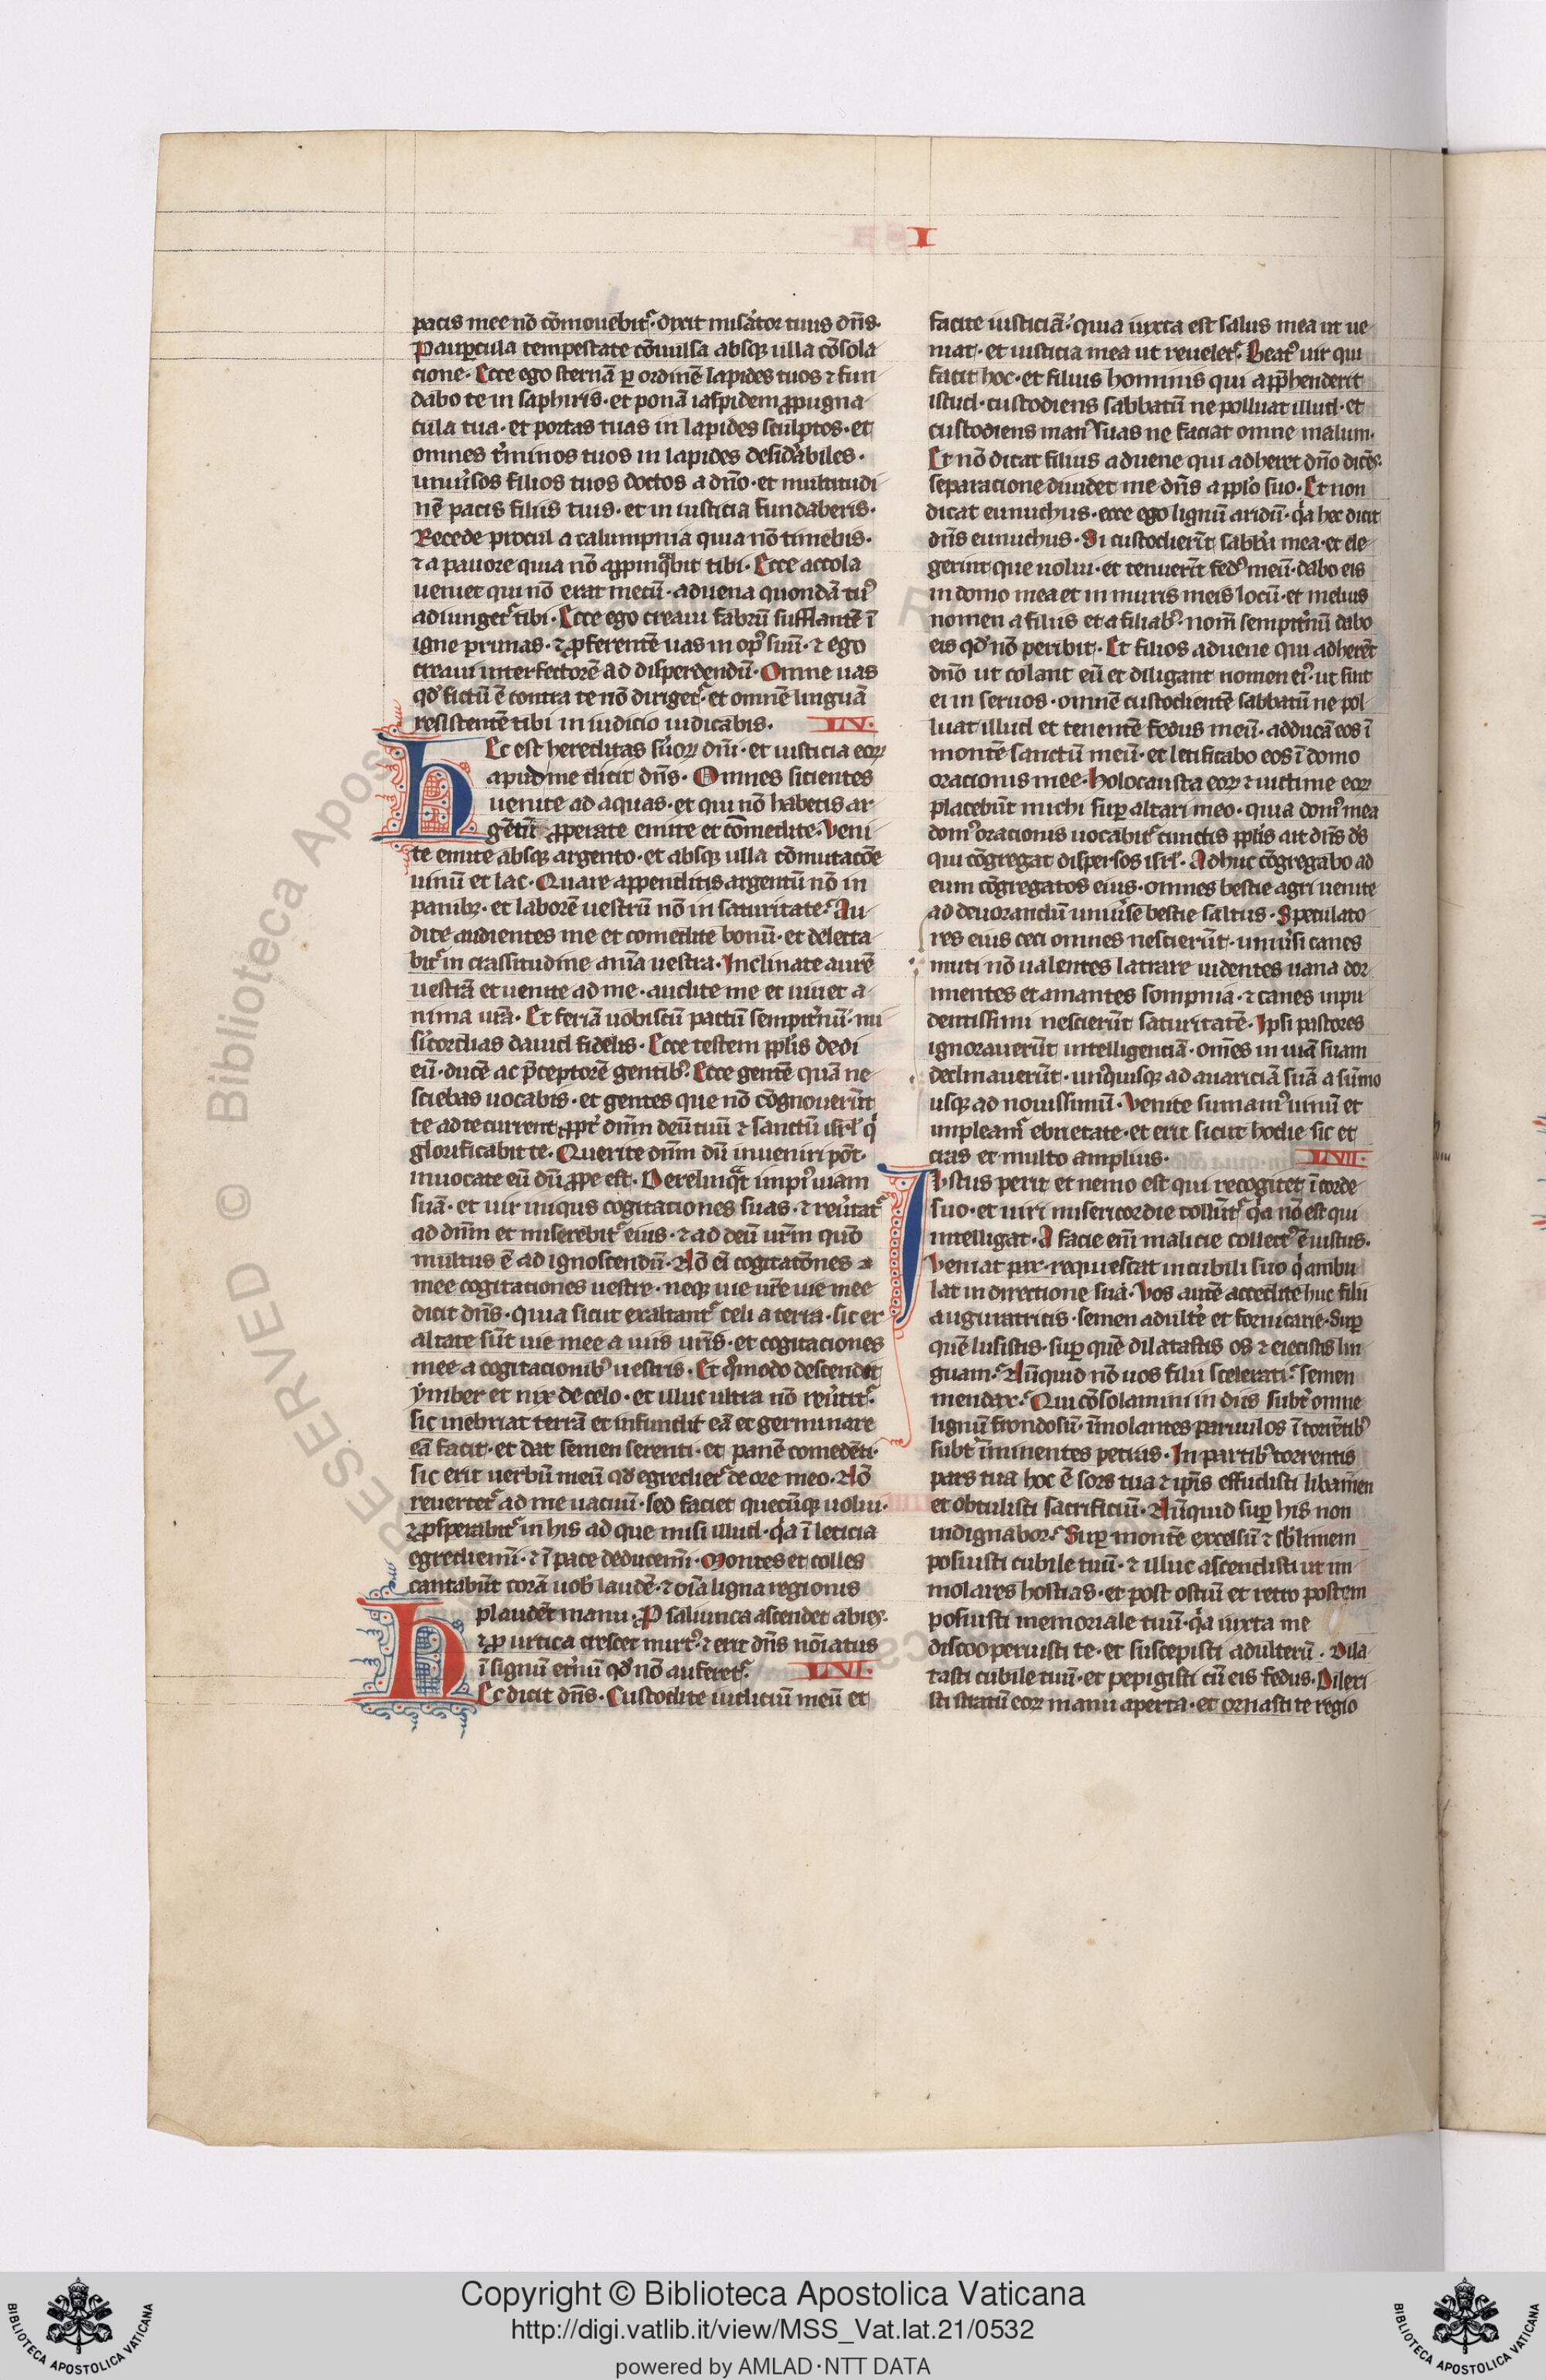 I
pacis mee nō cōmouebit᷑· dixit mis̾ator tuus dn̄s·
Paup̄cula tempestate cōuulsa absqꝫ ulla cōsola
cione· Ecce ego sternā ꝑ ordinē lapides tuos ⁊ fun
dabo te in saphiris· et ponā iaspidem ꝓpugna
cula tua· et portas tuas in lapides sculptos· et
omnes t̾minos tuos in lapides desid̾abiles·
uniu̾sos filios tuos doctos a dn̄o· et multitudi
nē pacis filiis tuis· et in iusticia fundaberis·
Recede procul a calumpnia quia nō timebis·
⁊ a pauore quia nō aꝓpinq̄bit tibi· Ecce accola
ueniet qui nō erat mecū· aduena quondā tu᷒
adiunget᷑ tibi· Ecce ego creaui fabrū sufflantē ī
igne prunas· ⁊ ꝓferentē uas in op᷒ suū· ⁊ ego
creaui interfectorē ad disperdendū· Omne uas
qd̾ fictū ē contra te nō diriget᷑· et omnē linguā
resistentē tibi in iudicio iudicabis· LV·
hEc est hereditas s̾uoꝝ dn̄i· et iusticia eoꝝ
apud me dicit dn̄s· Omnes sitientes
uenite ad aquas· et qui nō habetis ar
gētū ꝓperate emite et cōmedite· Veni
te emite absqꝫ argento· et absqꝫ ulla cōmutacōe
uinū et lac· Quare appenditis argentū nō in
panibꝫ· et laborē uestrū nō in saturitate· Au
dite audientes me et comedite bonū· et delecta
bit᷑ in crassitudine anīa uestra· Inclinate aurē
uestrā et uenite ad me· audite me et uiuet a
nima ur̄a· Et feriā uobiscū pactū sempit̾nū· mi
s̾icordias dauid fidelis· Ecce testem pp̄lis dedi
eū· ducē ac p̄ceptorē gentib᷒· Ecce gentē quā ne
sciebas uocabis· et gentes que nō cōgnouerūt
te ad te current ꝓpt̾ dn̄m deū tuū ⁊ sanctū isrl̄ q̾
glorificabit te· Querite dn̄m dū inueniri pōt·
inuocate eū dū ꝓpe est· Derelinq̄t impi᷒ uiam
suā· et uir iniqus cogitaciones suas· ⁊ reu̾tat᷑
ad dn̄m et miserebit᷑ eius· ⁊ ad deū ur̄m quō
multus ē ad ignoscendū· Nō eī cogitatōnes
mee cogitaciones uestre· neqꝫ uie ur̄e uie mee
dicit dn̄s· Quia sicut exaltant᷑ celi a terra· sic ex
altate sūt uie mee a uiis ur̄is· et cogitaciones
mee a cogitacionib᷒ uestris· Et q̾modo descendit
ymber et nix de celo· et illuc ultra nō reu̾tit᷑·
sic inebriat terrā et infundit eā et germinare
eā facit· et dat semen serenti· et panē comedēti·
sic erit uerbū meū qd̾ egrediet᷑ de ore meo· Nō
reuertet᷑ ad me uacuū· sed faciet quecūqꝫ uolui·
⁊ ꝓsperabit᷑ in his ad que misi illud· q̾a ī leticia
egrediemī· ⁊ ī pace deducemī· Montes et colles
cantabūt corā uob̾ laudē· ⁊ oīa ligna regionis
plaudēt manu· P saliunca ascendet abies·
⁊ ꝓ urtica crescet mirt᷒· ⁊ erit dn̄s nōiatus
ī signū et̾nū qd̾ nō auferet᷑· LVI·
hEc dicit dn̄s· Custodite iudiciū meū et
facite iusticiā· quia iuxta est salus mea ut ue
niat· et iusticia mea ut reuelet᷑· Beat᷒ uir qui
facit hoc· et filius hominis qui app̄henderit
istud· custodiens sabbatū ne polluat illud· et
custodiens man᷒ suas ne faciat omne malum·
Et nō dicat filius aduene qui adheret dn̄o dicēs·
separacione diuidet me dn̄s a pp̄lo suo· Et non
dicat eunuchus· ecce ego lignū aridū· q̾a hec dicit
dn̄s eunuchus· Si custodierūt sabb̾a mea· et ele
gerint que uolui· et tenuerīt fed᷒ meū· dabo eis
in domo mea et in muris meis locū· et melius
nomen a filiis et a filiab᷒· nom̄ sempit̾nū dabo
eis qd̾ nō peribit· Et filios aduene qui adherēt
dn̄o ut colant eū et diligant nomen ei᷒· ut sint
ei in seruos· omnē custodientē sabbatū ne pol
luat illud et tenentē fedus meū· adducā eos ī
montē sanctū meū· et letificabo eos ī domo
oracionis mee· Holocausta eoꝝ ⁊ uictime eoꝝ
placebūt michi suꝑ altari meo· quia dom᷒ mea
dom᷒ oracionis uocabit᷑ cunctis pp̄lis ait dn̄s ds̄
qui cōgregat dispersos isrl̄· Adhuc cōgregabo ad
eum cōgregatos eius· omnes bestie agri uenite
ad deuorandū uniu̾se bestie saltus· Speculato
res eius ceci omnes nescierūt· uniu̾si canes
muti nō ualentes latrare uidentes uana dor
mientes et amantes sompnia· ⁊ canes inpu
dentissimi nescierūt saturitatē· Ipsi pastores
ignorauerūt intelligenciā· om̄es in uiā suam
declinauerūt· unq̾uisqꝫ ad auariciā suā a sūmo
usqꝫ ad nouissimū· Venite sumam᷒ uinū et
impleam᷑ ebrietate· et erit sicut hodie sic et
cras et multo amplius· LVII·
Iustus perit et nemo est qui recogitet ī corde
suo· et uiri misericordie collūt᷑ q̾a nō est qui
intelligat· A facie em̄ malicie collect᷒ ē iustus·
Veniat pax· requiescat in cubili suo q̾ ambu
lat in directione sua· Vos autē accedite huc filii
auguratricis· semen adult̾e et fornicarie· Suꝑ
quē lusistis· suꝑ quē dilatastis os ⁊ eiecistis lin
guam· Nūquid nō uos filii scelerati· semen
mendax· Qui cōsolamini in diis subt̾ omne
lignū frondosū· īmolantes paruulos ī torrētib᷒
subt̾ īminentes petras· In partib᷒ torrentis
pars tua hoc ē sors tua ⁊ ip̄is effudisti libamen
et obtulisti sacrificiū· Nūquid suꝑ his non
indignabor· Suꝑ montē excelsū ⁊ sb̾limem
posuisti cubile tuū· ⁊ illuc ascendisti ut im
molares hostias· et post ostiū et retro postem
posuisti memoriale tuū· q̾a iuxta me
discooperuisti te· et suscepisti adulterū· Dila
tasti cubile tuū· et pepigisti cū eis fedus· Dilexi
sti stratū eoꝝ manu aperta· et ornasti te regio
Copyright © Biblioteca Apostolica Vaticana
http://digi.vatlib.it/view/MSS_Vat.lat.21/0532
powered by AMLAD·NTT DATA
BIBLIOTECA APOSTOLICA VATICANA
BIBLIOTECA APOSTOLICA VATICANA